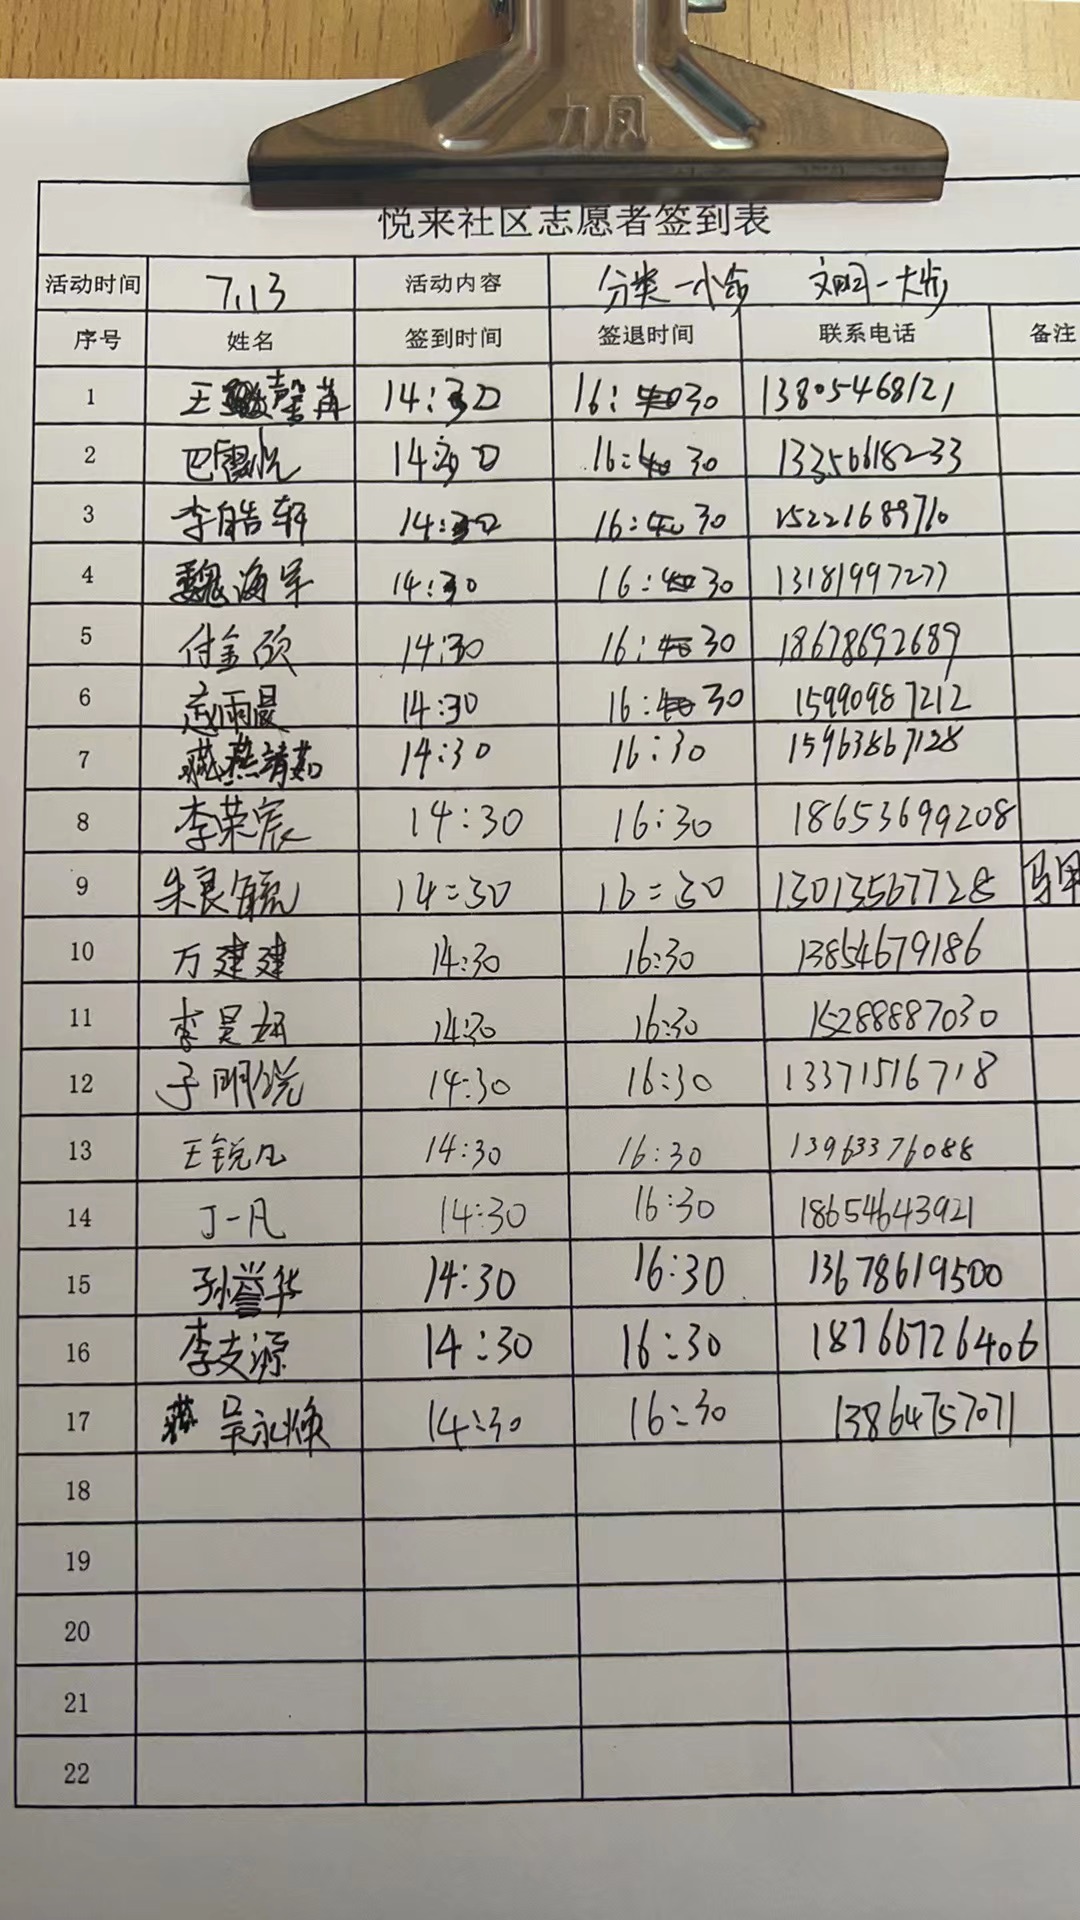 九凤
悦来社区志愿者签到表
活动时间 7.13 活动内容 分类一小步 文明一大步
序号 姓名 签到时间 签退时间 联系电话 备注
1 王馨苒 14:30 16:30 13805468121
2 巴雪悦 14:30 16:30 13356618233
3 李皓轩 14:30 16:30 15221689710
4 魏海军 14:30 16:30 13181997277
5 付金硕 14:30 16:30 18678692689
6 赵雨晨 14:30 16:30 15990987212
7 燕靖茹 14:30 16:30 15963867128
8 李荣宸 14:30 16:30 18653699208
9 朱良毓 14:30 16:30 13013567728
10 万建建 14:30 16:30 13854679186
11 李昊妍 14:30 16:30 15288887030
12 于明锐 14:30 16:30 13371516718
13 王锐凡 14:30 16:30 13963376088
14 丁一凡 14:30 16:30 18654643921
15 孙誉华 14:30 16:30 13678619500
16 李支源 14:30 16:30 18766726406
17 吴永焕 14:30 16:30 13864757071
18
19
20
21
22